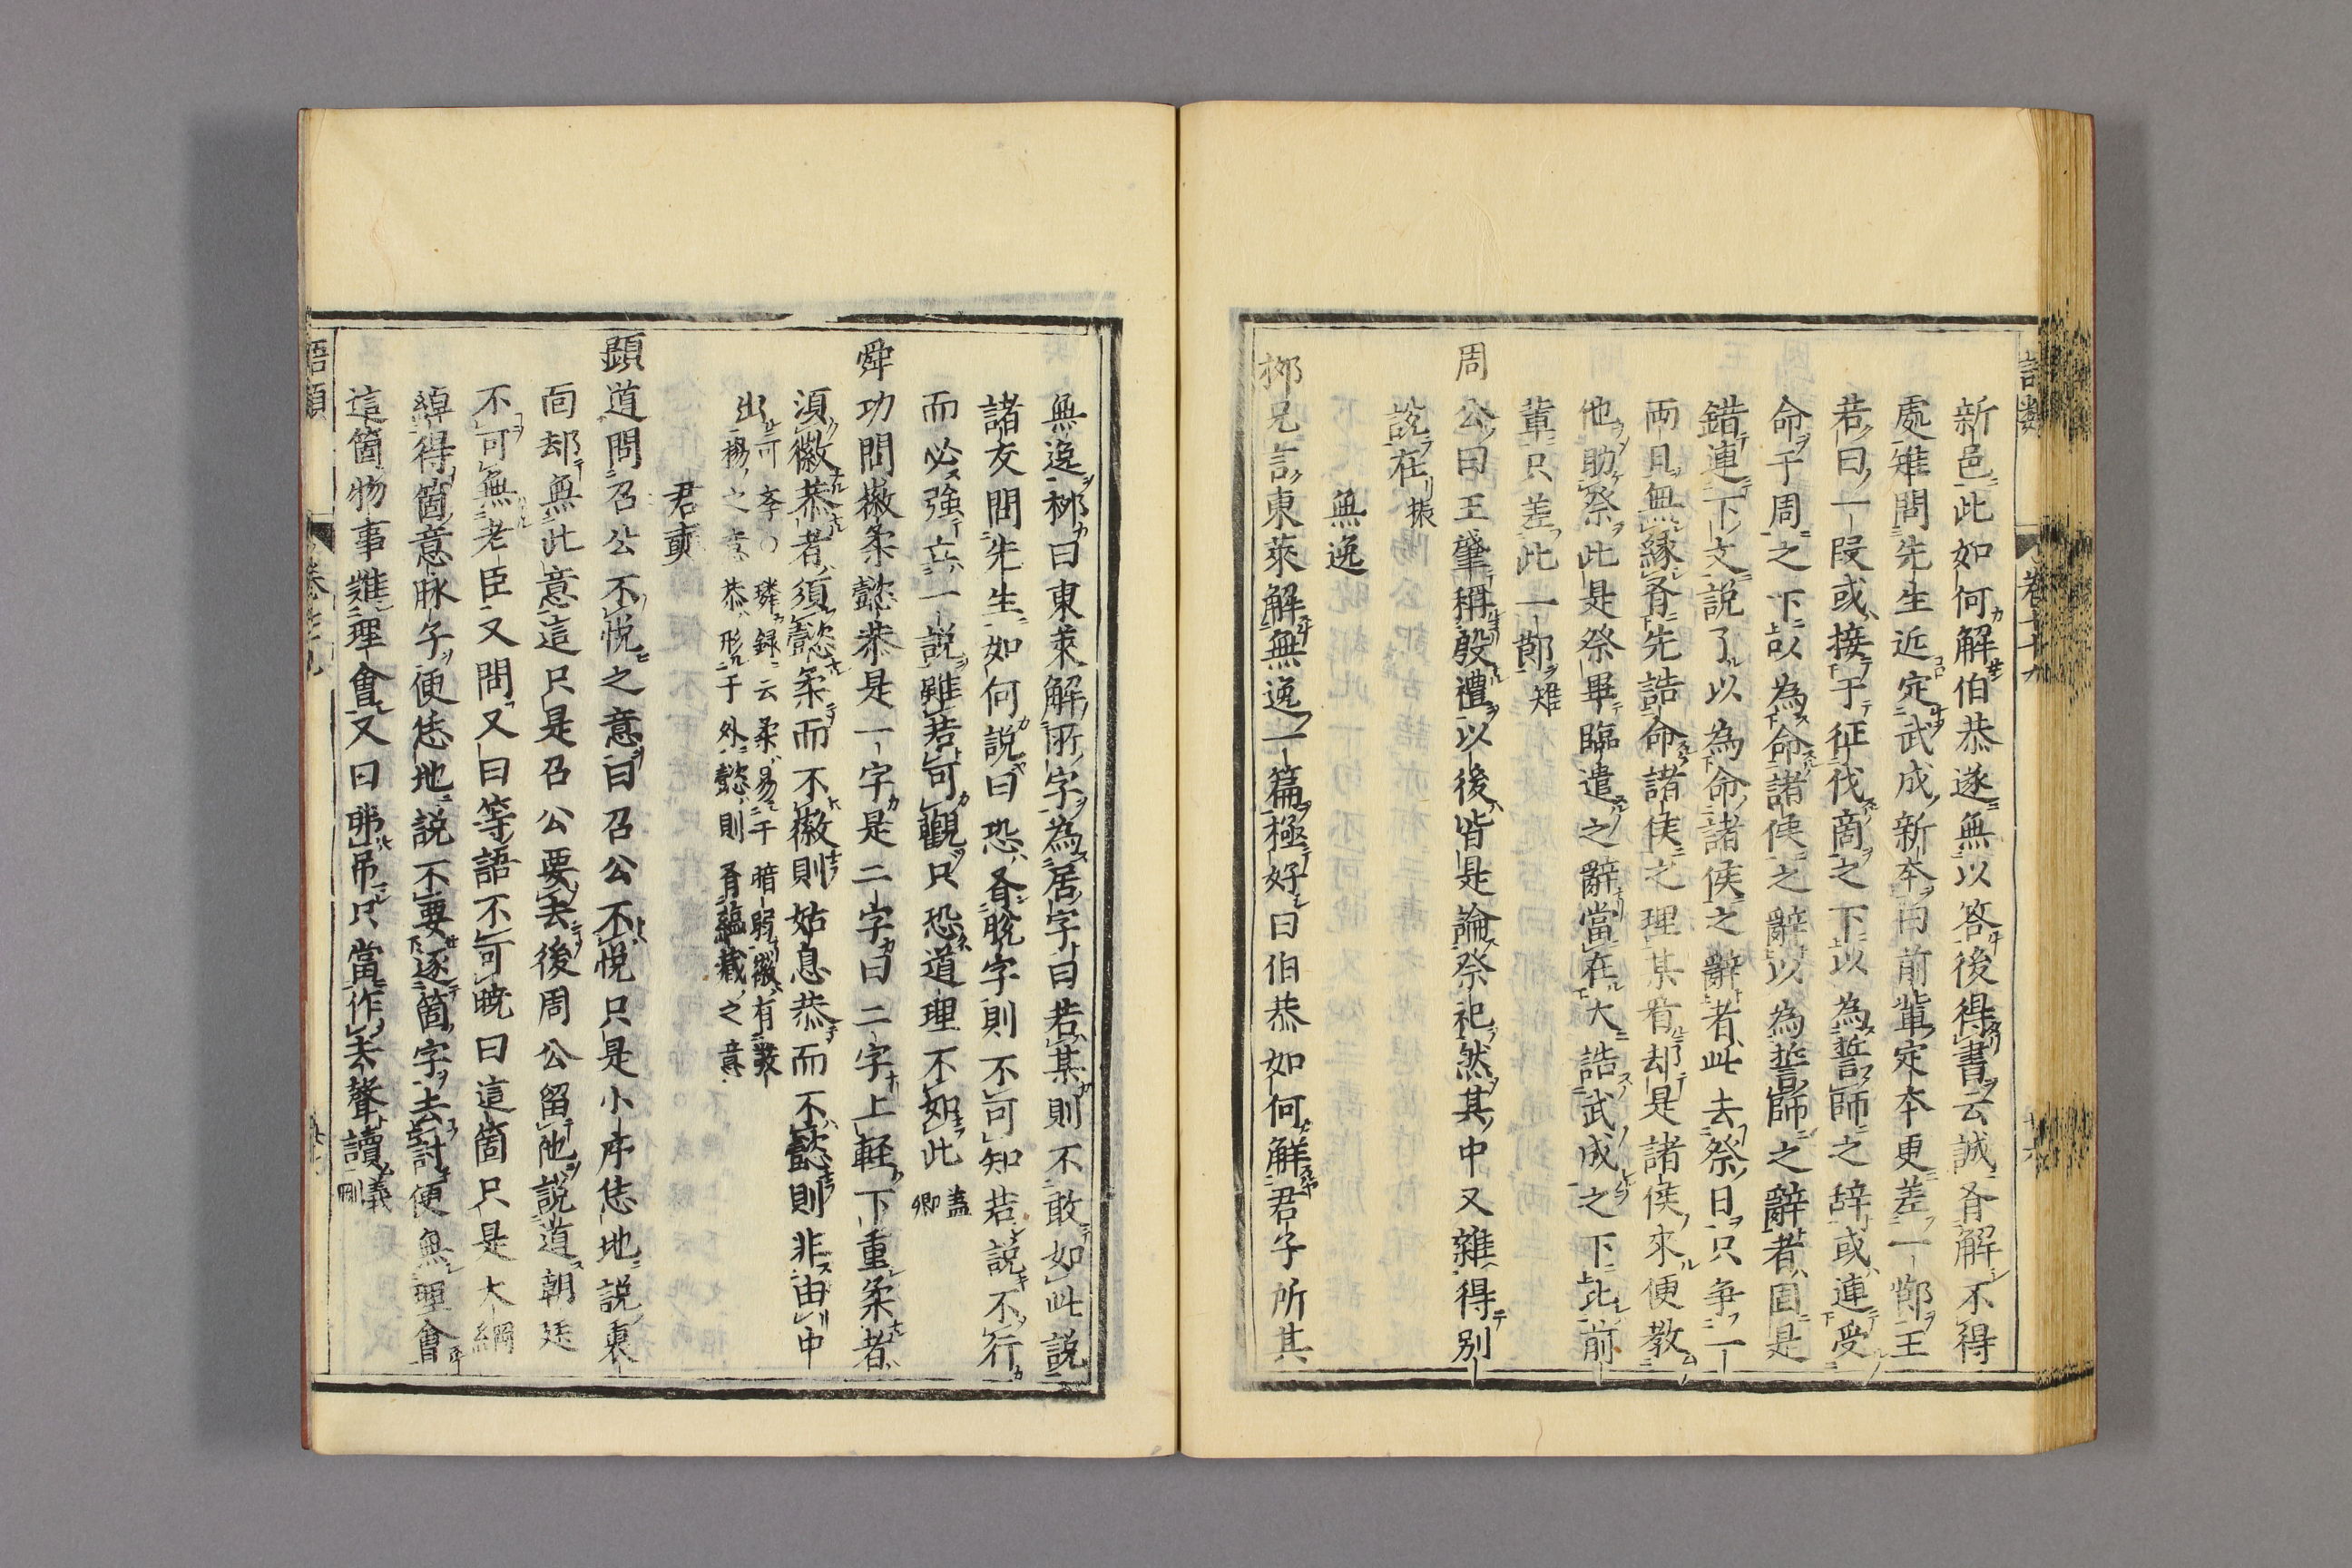 新邑此如何解伯恭遂無以答後得書云誠有解不得
處雉問先生近定武成新本曰前輩定本更差一節王
若曰一段或接于征伐商之下以為誓師之辞或連受
命于周之下以為命諸侯之辭以為誓師之辭者固是
錯連下文説了以為命諸侯之辭者此去祭日只争一
両日無縁有先誥命諸侯之理某看却是諸侯來便教
他助祭此是祭畢臨遣之辭當在大誥武成之下比前
輩只差此一節雉
周公曰王肇稱殷禮以後皆是論祭祀然其中又雜得别
說在振
無逸
栁兄言東萊解無逸一篇極好曰伯恭如何解君子所其
無逸栁曰東萊解所字為居字曰若某則不敢如此説
諸友問先生如何説曰恐有脱字則不可知若説不行
而必強立一説雖若可觀只恐道理不如此葢卿
舜功問徽柔懿恭是一字是二字曰二字上軽下重柔者
須徽恭者須懿柔而不徽則姑息恭而不懿則非由中
出可李○璘録云柔易于暗弱徽有發
揚之意恭形于外懿則有蘊藏之意
君奭
顕道問召公不悦之意曰召公不悦只是小序恁地説裏
面却無此意這只是召公要去後周公留他説道朝廷
不可無老臣又問又曰等語不可曉曰這箇只是大綱
綽得箇意脉子便恁地説不要逐箇字去討便無理會
這箇物事難理會又曰弗吊只當作去聲讀義剛
語類
卷七十九